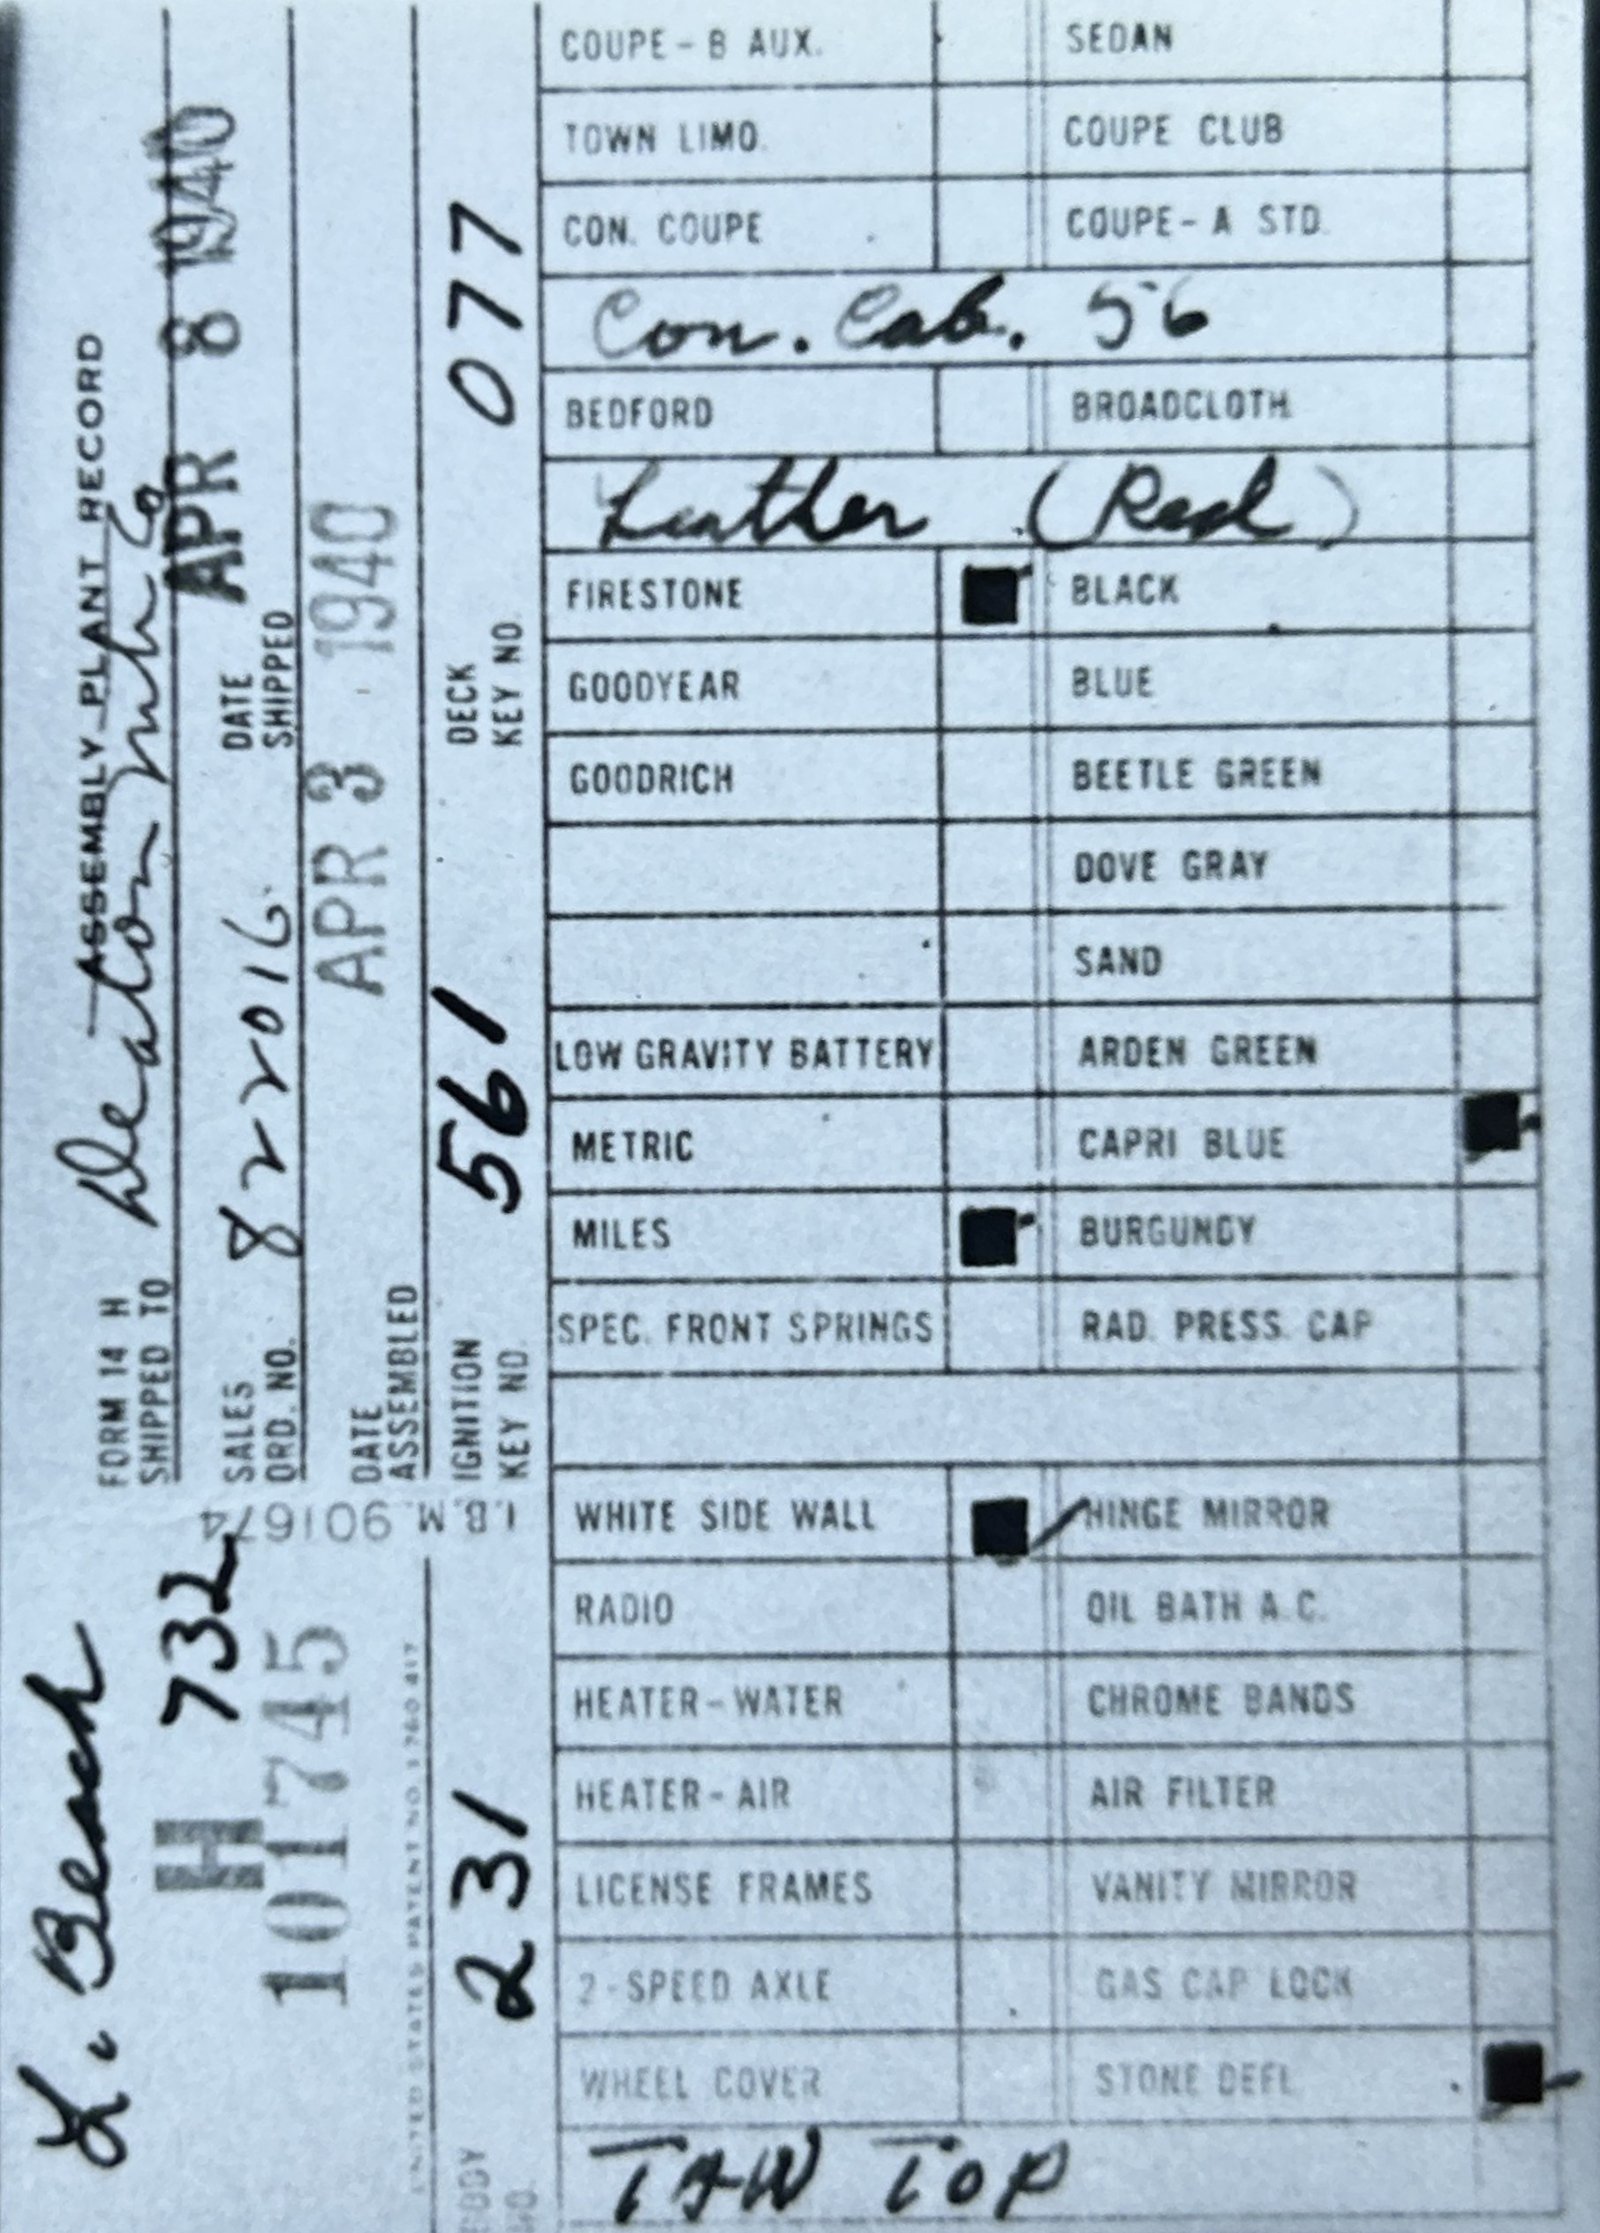 L. Beach
FORM 14 H ASSEMBLY PLANT RECORD
SHIPPED TO Deaton
H 732
101745
SALES ORD. NO. 822016
DATE SHIPPED APR 8 1940
I.B.M. 901674
DATE ASSEMBLED APR 3 1940
UNITED STATES PATENT NO. 1 760 417
BODY NO. 231
IGNITION KEY NO. 561
DECK KEY NO. 077
COUPE - B AUX. SEDAN
TOWN LIMO. COUPE CLUB
CON. COUPE COUPE - A STD.
Con. Cab. 56
BEDFORD BROADCLOTH
Leather (Red)
FIRESTONE BLACK
GOODYEAR BLUE
GOODRICH BEETLE GREEN
DOVE GRAY
SAND
LOW GRAVITY BATTERY ARDEN GREEN
METRIC CAPRI BLUE
MILES BURGUNDY
SPEC. FRONT SPRINGS RAD. PRESS. CAP
WHITE SIDE WALL HINGE MIRROR
RADIO OIL BATH A.C.
HEATER - WATER CHROME BANDS
HEATER - AIR AIR FILTER
LICENSE FRAMES VANITY MIRROR
2 - SPEED AXLE GAS CAP LOCK
WHEEL COVER STONE DEFL
TAN TOP